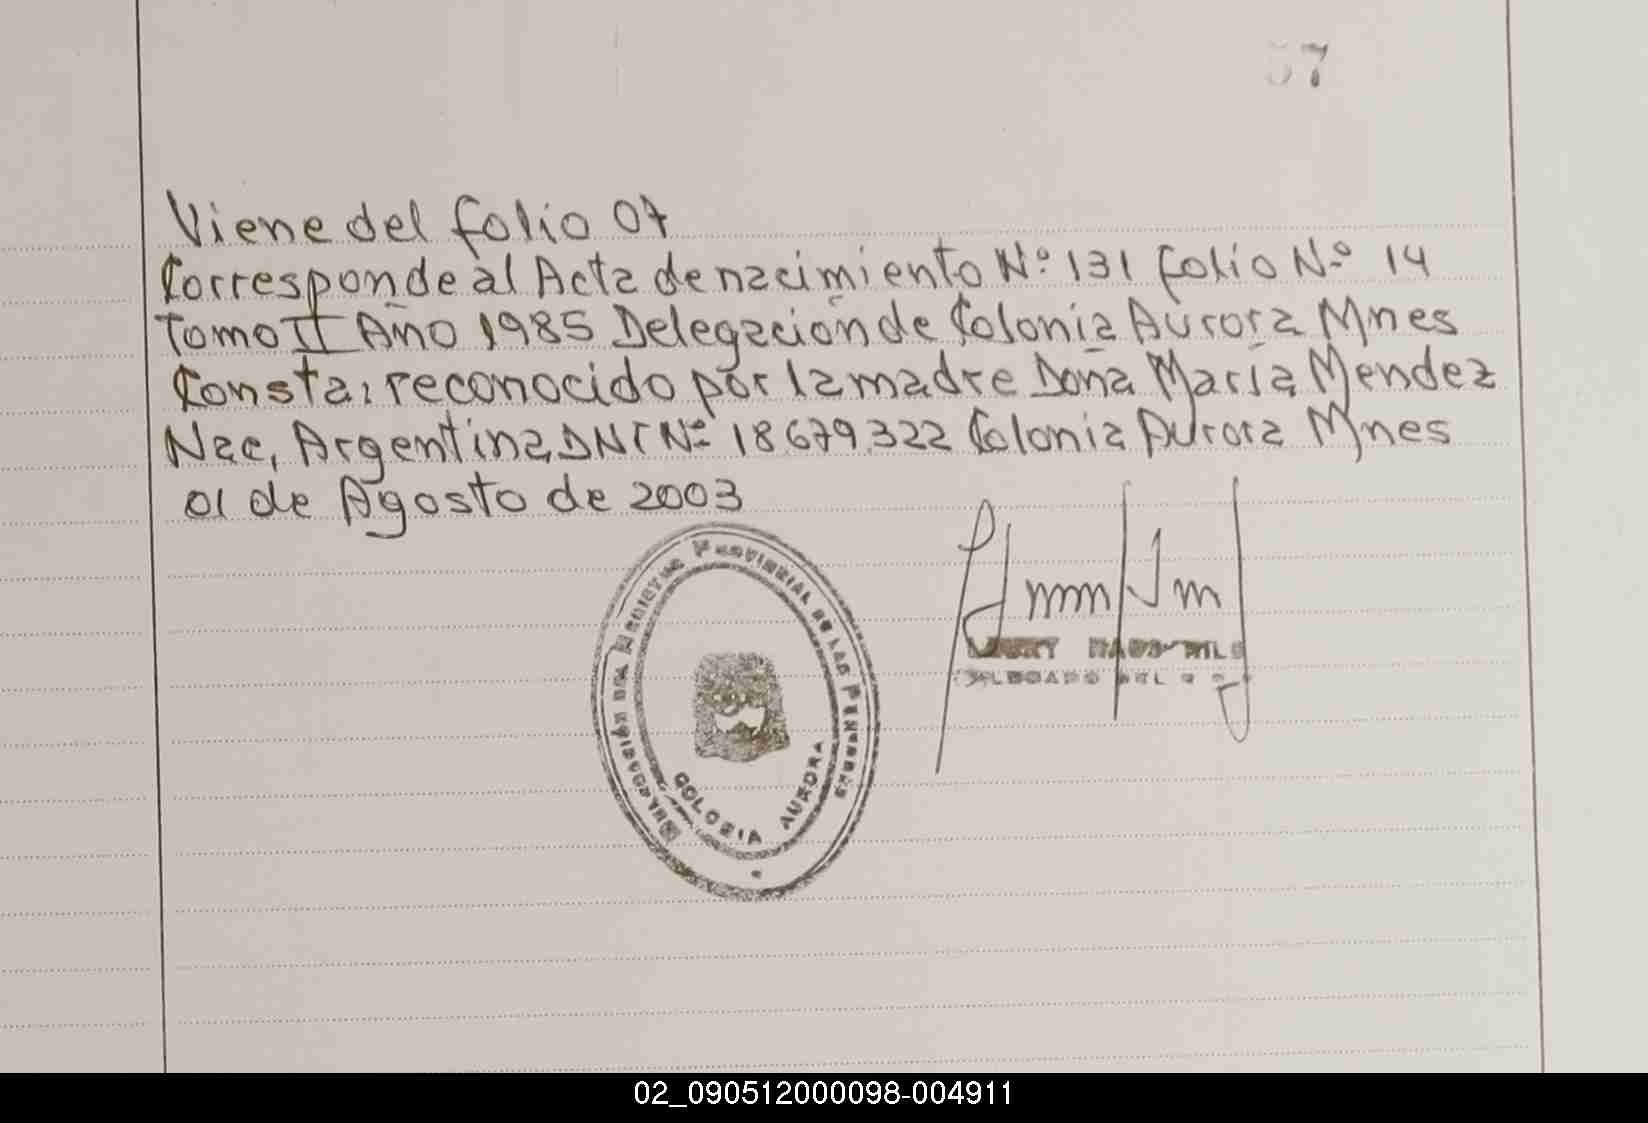 57
Viene del folio 07
Corresponde al Acta de nacimiento Nº 131 folio Nº 14
Tomo II Año 1985 Delegacion de Colonia Aurora Mnes
Consta: reconocido por la madre Doña María Mendez
Nac, Argentina DNI Nº 18.679.322 Colonia Aurora Mnes
01 de Agosto de 2003
PROVINCIAL DE LAS PERSONAS
COLONIA AURORA
02_090512000098-004911